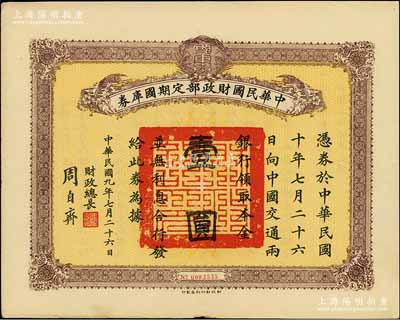 上海陽明拍賣
中華民國財政部定期國庫券
憑券於中華民國
十年七月二十六
日向中國交通兩
銀行領取本金
壹圓
並無利息合行發
給此券為據
財政總長
周自齊
中華民國九年七月二十六日
上海陽明拍賣